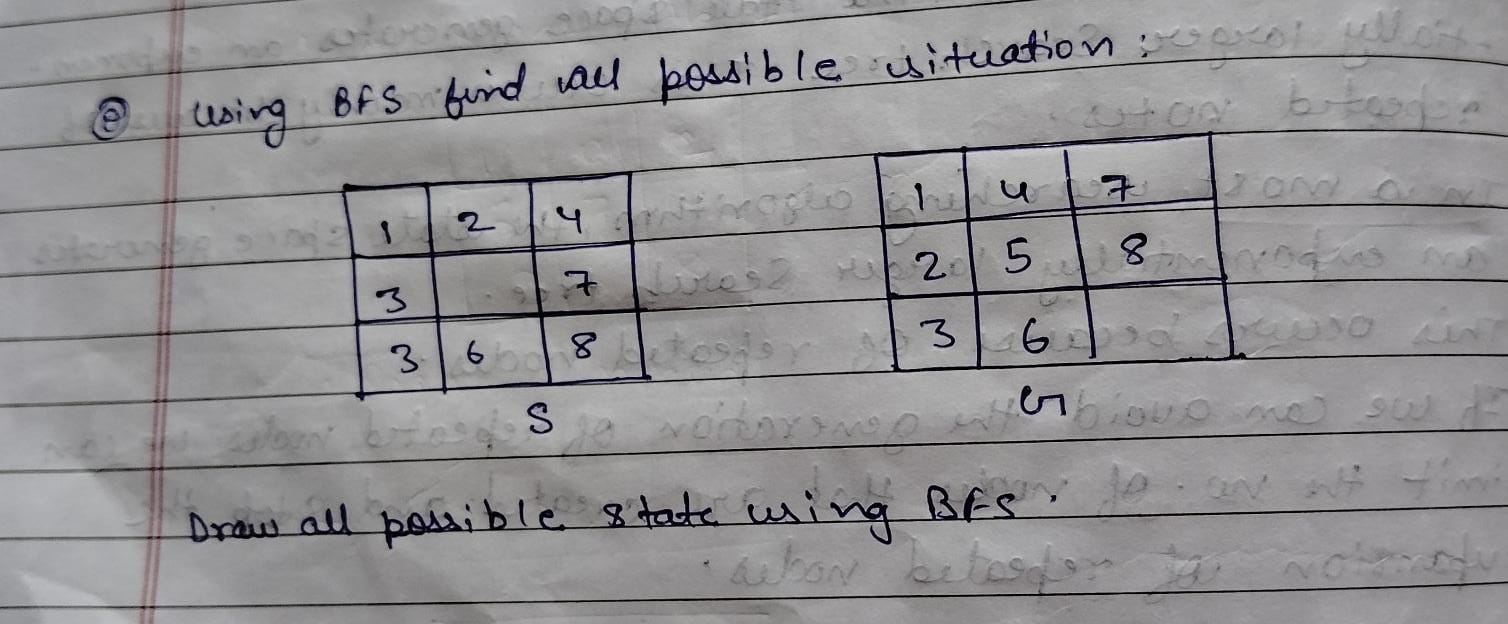 Q Using BFS find all possible situation :
1 2 4
3 7
3 6 8
S
1 4 7
2 5 8
3 6
G
Draw all possible state using BFS.